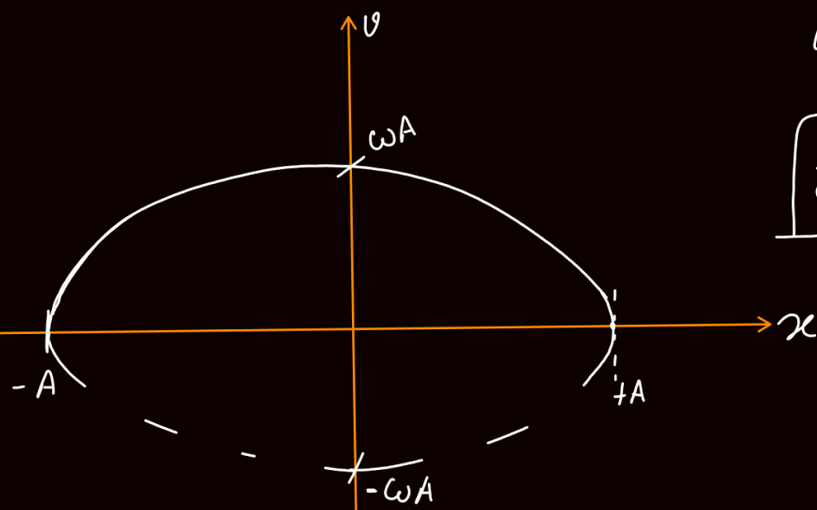 v
ωA
x
-A
+A
-ωA